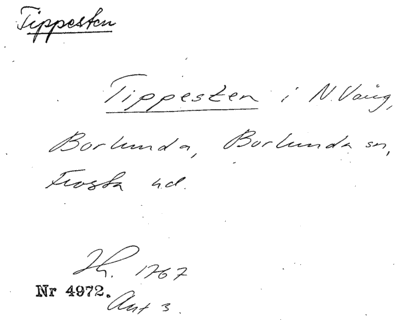 Tippesten
Tippesten i N. Vång,
Borlunda, Borlunda sn,
Frosta hd.
Jh. 1767
Nr 4972.
Ant 3.